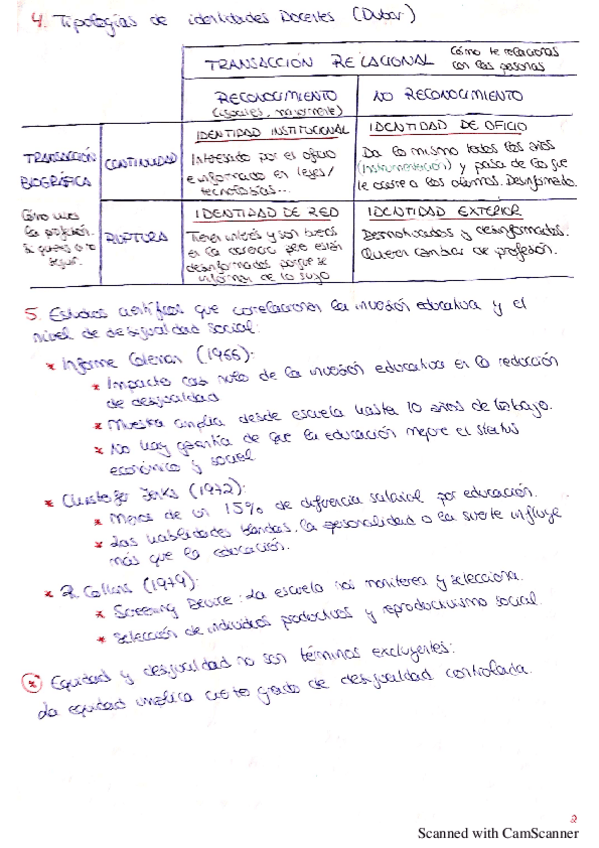 4. Tipologías de identidades Docentes (Dubar)
TRANSACCIÓN RELACIONAL Cómo te relacionas
con las personas
RECONOCIMIENTO
(iguales, mayormente)
NO RECONOCIMIENTO
TRANSACCIÓN
BIOGRÁFICA
Cómo vives
la profesión.
Si quieres o no
seguir.
CONTINUIDAD
IDENTIDAD INSTITUCIONAL
Interesado por el oficio
e informado en leyes/
tecnologías...
IDENTIDAD DE OFICIO
Da lo mismo todos los años
(instrumentación) y pasa de lo que
le ocurre a los alumnos. Desinformado.
RUPTURA
IDENTIDAD DE RED
Tienen interés y son buenos
en la docencia pero están
desinformados porque se
informan de lo suyo
IDENTIDAD EXTERIOR
Desmotivados y desinformados.
Quieren cambiar de profesión.
5. Estudios científicos que correlacionan la inversión educativa y el
nivel de desigualdad social:
* Informe Coleman (1966):
* Impacto casi nulo de la inversión educativa en la reducción
de desigualdad
* Muestra amplia desde escuela hasta 10 años de trabajo.
* No hay garantía de que la educación mejore el status
económico y social
* Christofer Jenks (1972):
* Menos de un 15% de diferencia salarial por educación.
* Las habilidades blandas, la personalidad o la suerte influye
más que la educación.
* R. Collins (1979):
* Screening Device: La escuela nos monitorea y selecciona.
* Selección de individuos productivos y reproduccionismo social.
* Equidad y desigualdad no son términos excluyentes:
La equidad implica cierto grado de desigualdad controlada.
2
Scanned with CamScanner